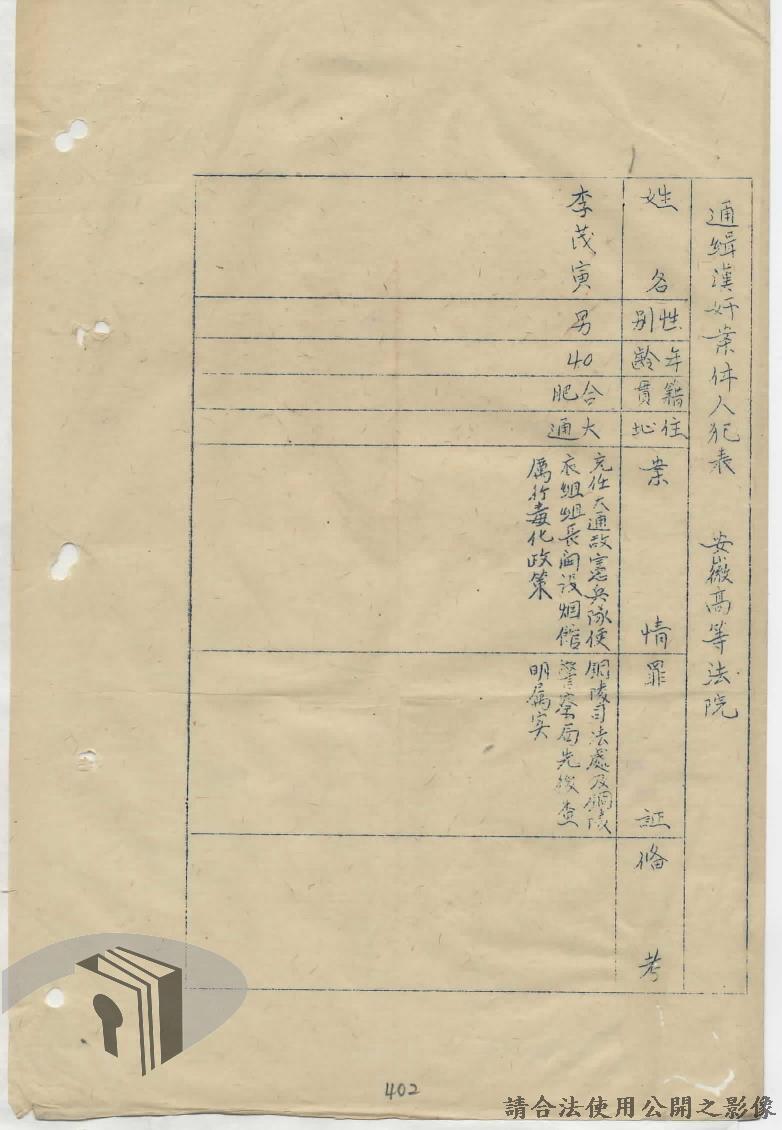 通緝漢奸案件人犯表 安徽高等法院
姓名
性別
年齡
籍貫
住址
案情
罪証
備考
李茂寅
男
40
合肥
大通
充任大通敌憲兵隊便
衣組組長開設烟館
厲行毒化政策
銅陵司法處及銅陵
警察局先後查
明属实
402
請合法使用公開之影像